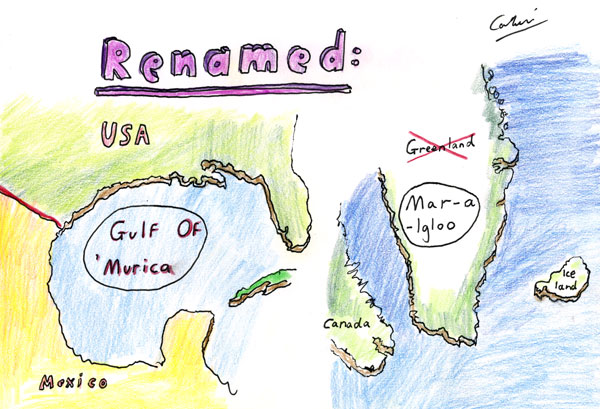 Renamed:
USA
Gulf Of
'Murica
Mexico
Greenland
Mar-a
-Igloo
Canada
Ice
land